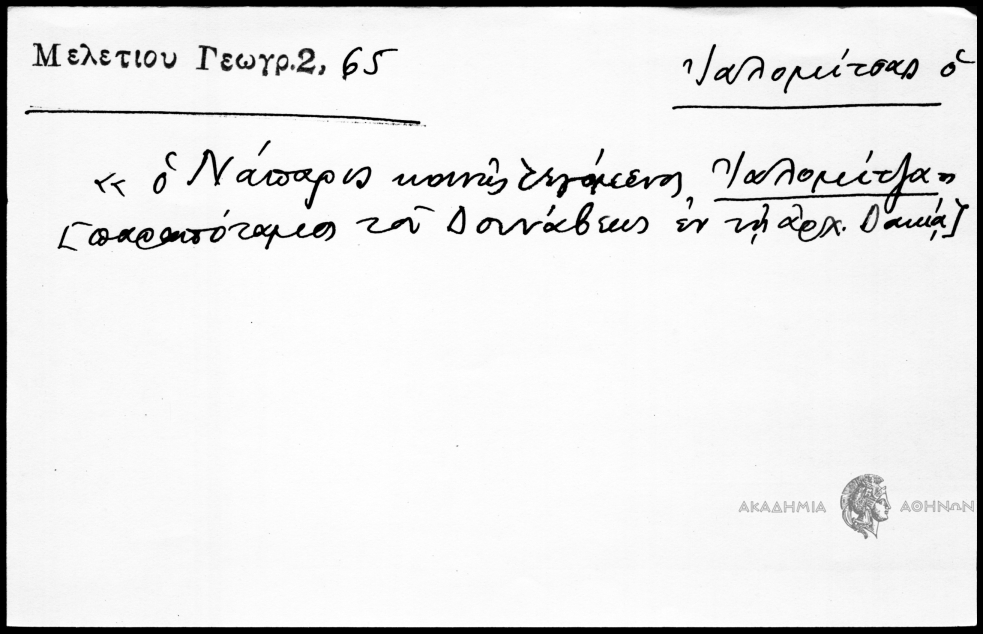 Μελετιου Γεωγρ.2, 65
Ἰαλομίτσας ὁ
« ὁ Νάπαρις κοινῶς λεγόμενος Ἰαλομίτζας
[παραπόταμος τοῦ Δουνάβεως ἐν τῇ ἀρχ. Δακίᾳ]
ΑΚΑΔΗΜΙΑ ΑΘΗΝΩΝ